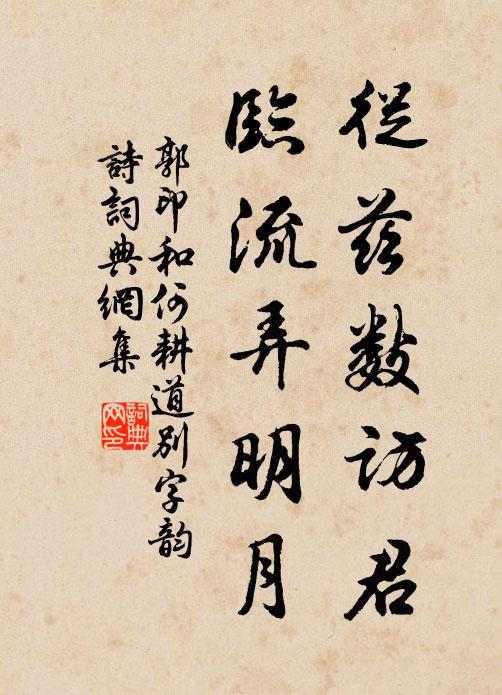 從茲數訪君
臨流弄明月
郭印和何耕道別字韵
詩詞典網集
詞典网印